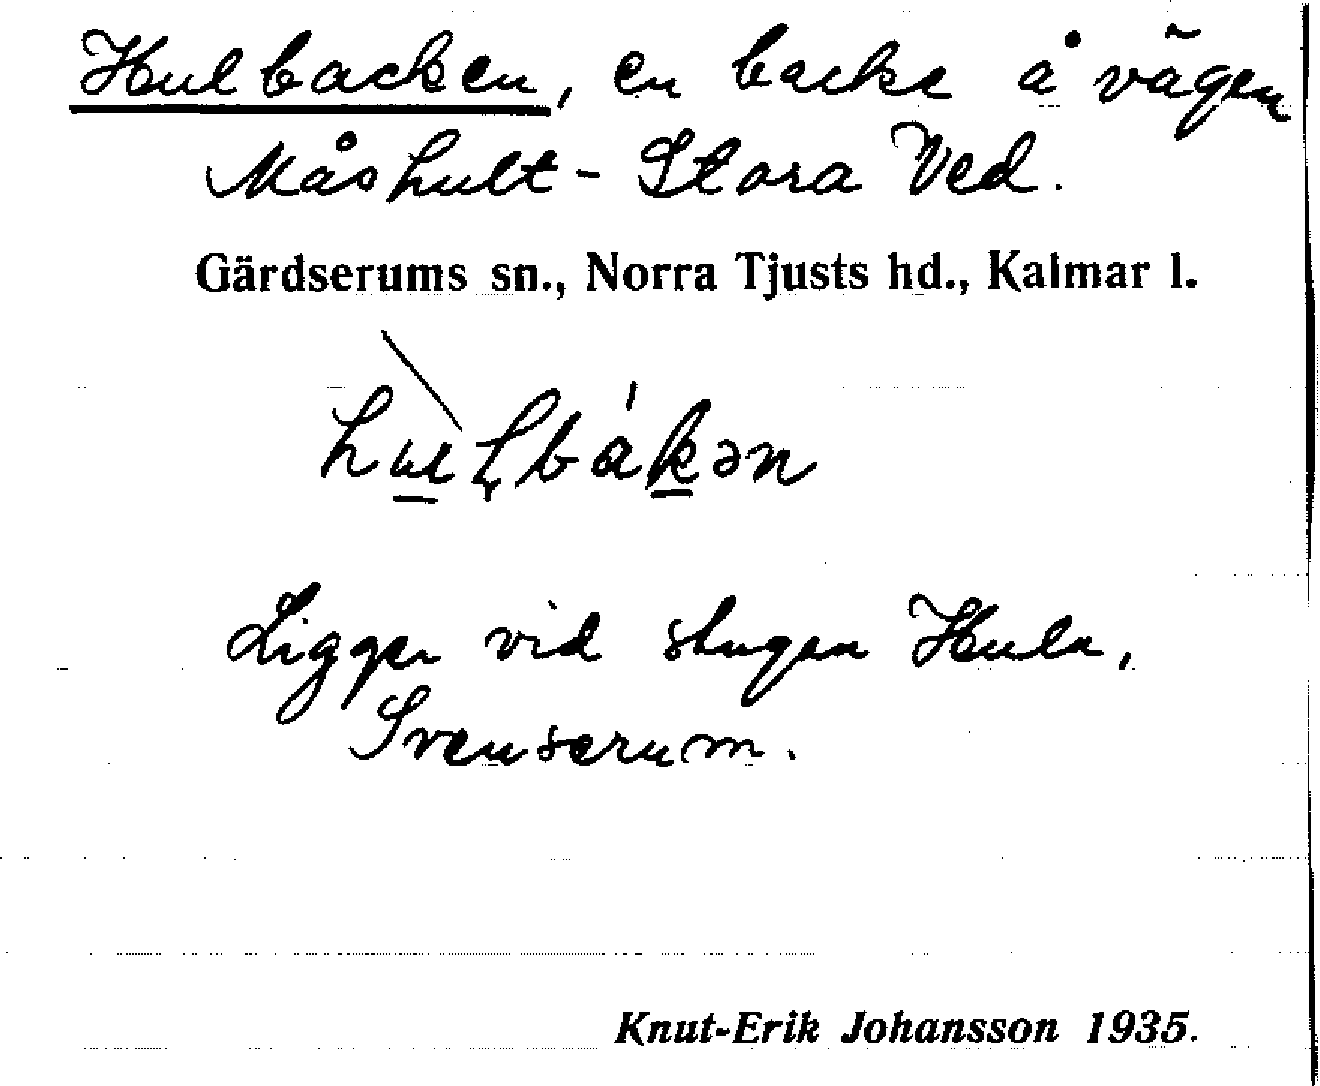 Hulbacken, en backe å vägen
Måshult - Stora Ved.
Gärdserums sn., Norra Tjusts hd., Kalmar l.
Ligger vid stugan Hula,
Svenserum.
Knut-Erik Johansson 1935.